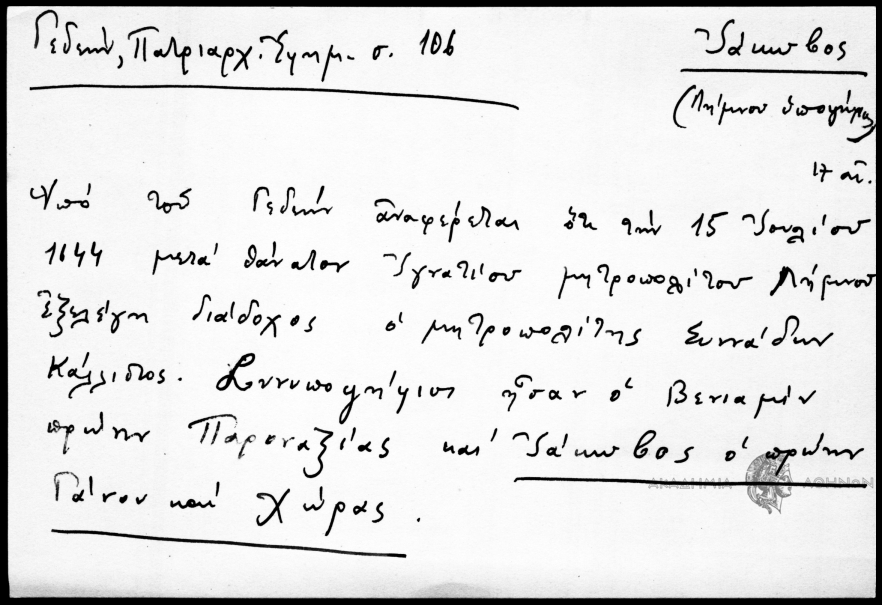 Γεδεών, Πατριαρχ. Ἐφημ. σ. 106
Ἰάκωβος
(Λήμνου ὑποψήφιος)
17 αἰ.
Ὑπό τοῦ Γεδεών ἀναφέρεται ὅτι τήν 15 Ἰουλίου
1644 μετά θάνατον Ἰγνατίου μητροπολίτου Λήμνου
ἐξελέγη διάδοχος ὁ μητροπολίτης Συννάδων
Κάλλιστος. Συνυποψήφιοι ἦσαν ὁ Βενιαμίν
πρώην Παροναξίας καί Ἰάκωβος ὁ πρώην
Γάνου καί χώρας.
ΑΚΑΔΗΜΙΑ ΑΘΗΝΩΝ